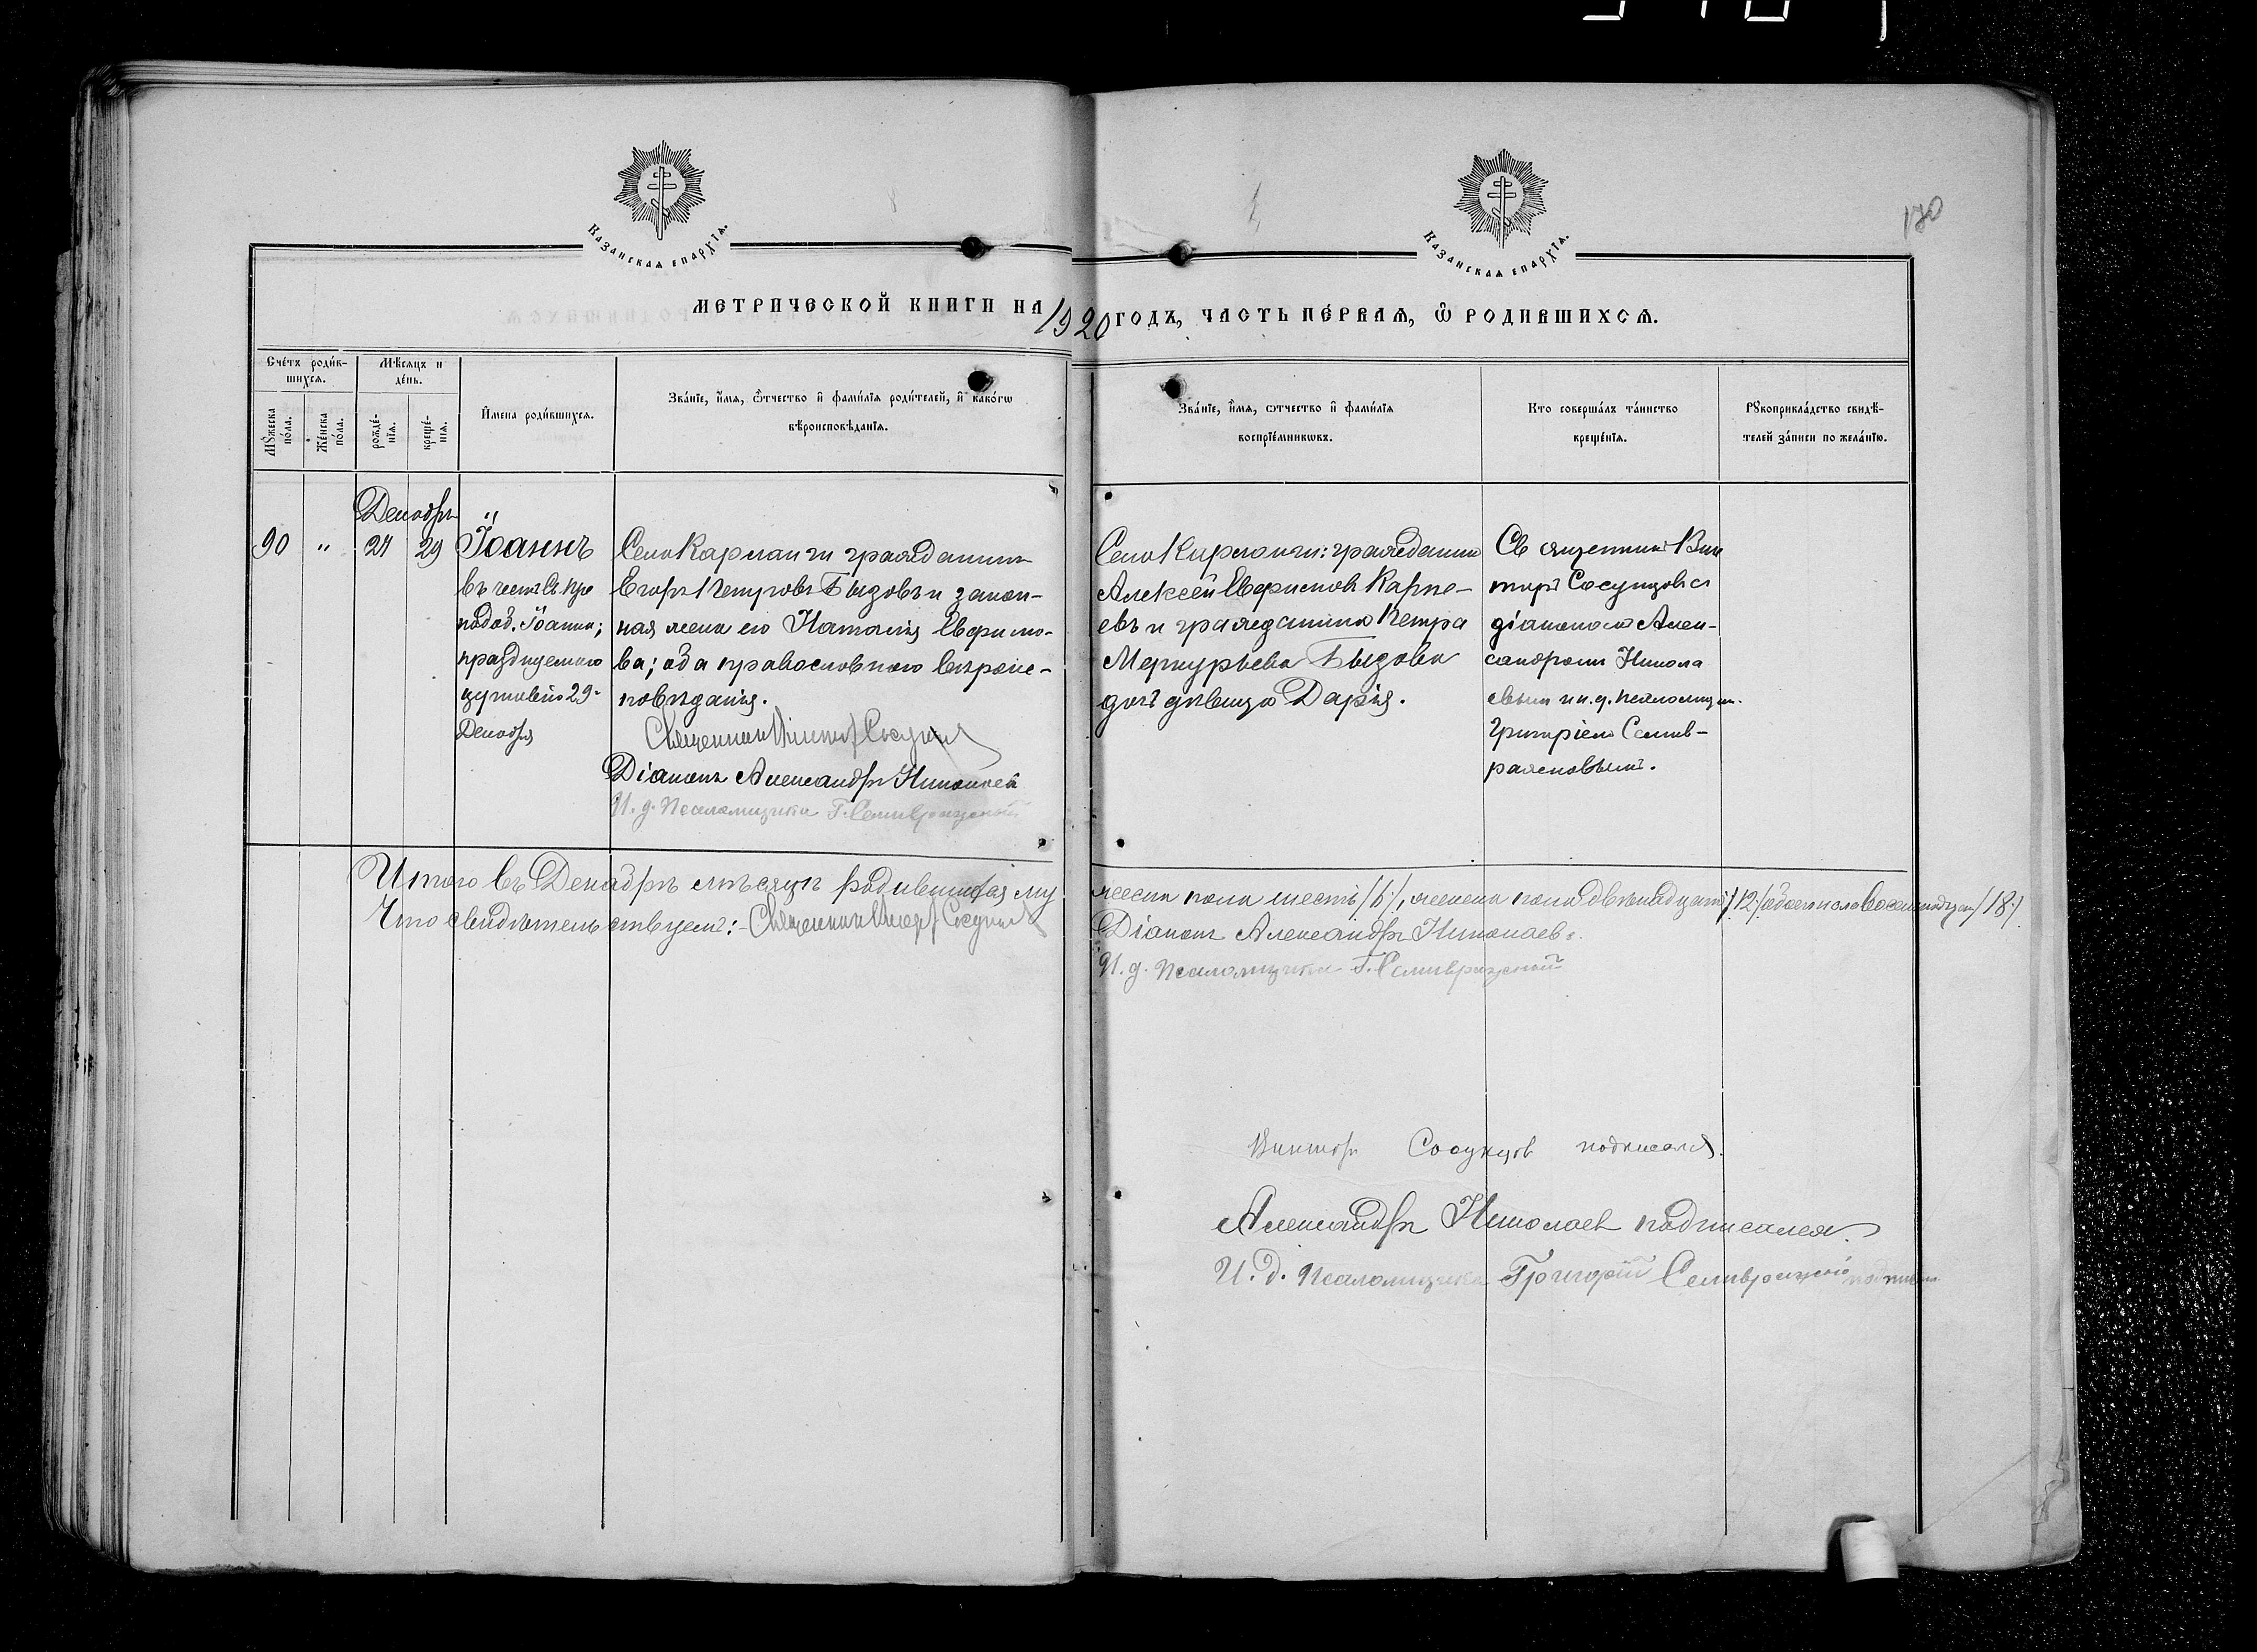 170
Казанская епархїя.
Казанская епархїя.
Метрической книги на 1920 годъ, часть пе́рвая, ѡ҆ родившихся.
Сче́тъ роди́в-
шихся.
Мꙋ́жеска
по́ла.
Же́нска
по́ла.
Мѣсяцъ и
де́нь.
рожде́-
нїя.
креще́-
нїя.
И҆мена роди́вшихся.
Зва́нїе, и҆́мя, ѻ҆́тчество и҆ фами́лїя роди́телей, и҆ како́гѡ
вѣроисповѣ́данїя.
Зва́нїе, и҆́мя, ѻтчество и҆ фами́лїя
воспрїе́мникѡвъ.
Кто соверша́лъ та́инство
креще́нїя.
Рꙋкоприкла́дство свидѣ́-
телей за́писи по жела́нїю.
Декабрь
90 " 27 29
Іоаннъ
въ честь Св. пре
подоб. Іоанна;
празднуемаго
церковью 29-
Декабря
Села Кармалъ гражданинъ
Егоръ Петровъ Быздовъ и закон-
ная жена его Наталія Ефимо-
ва; оба православнаго вѣроис-
повѣданія.
Священникъ Викторъ Сосунцовъ
Діаконъ Александръ Николаевъ
И. д. Псаломщика Г.
Села гражданин
Алексѣй Карпе-
евъ и гражданина Петра
Меркурьева Быздова
дочь дѣвица Дарія.
Священникъ Вик
торъ Сосунцовъ съ
діакономъ Алек-
сандромъ Никола
евымъ и и. д. псаломщик.
Григоріемъ Семив-
ражновымъ.
Итого въ Декабрѣ мѣсяцѣ родившихся му
жеска пола шесть /6/, женска пола двѣнадцать /12/ обоего пола восемнадцать /18/
Что свидѣтельствуемъ: Священникъ Викторъ Сосунцовъ
Діаконъ Александръ Николаевъ.
И. д. Псаломщика Г.
Викторъ Сосунцов подписался.
Александръ Николаев подписался.
И. д. Псаломщика Григорій